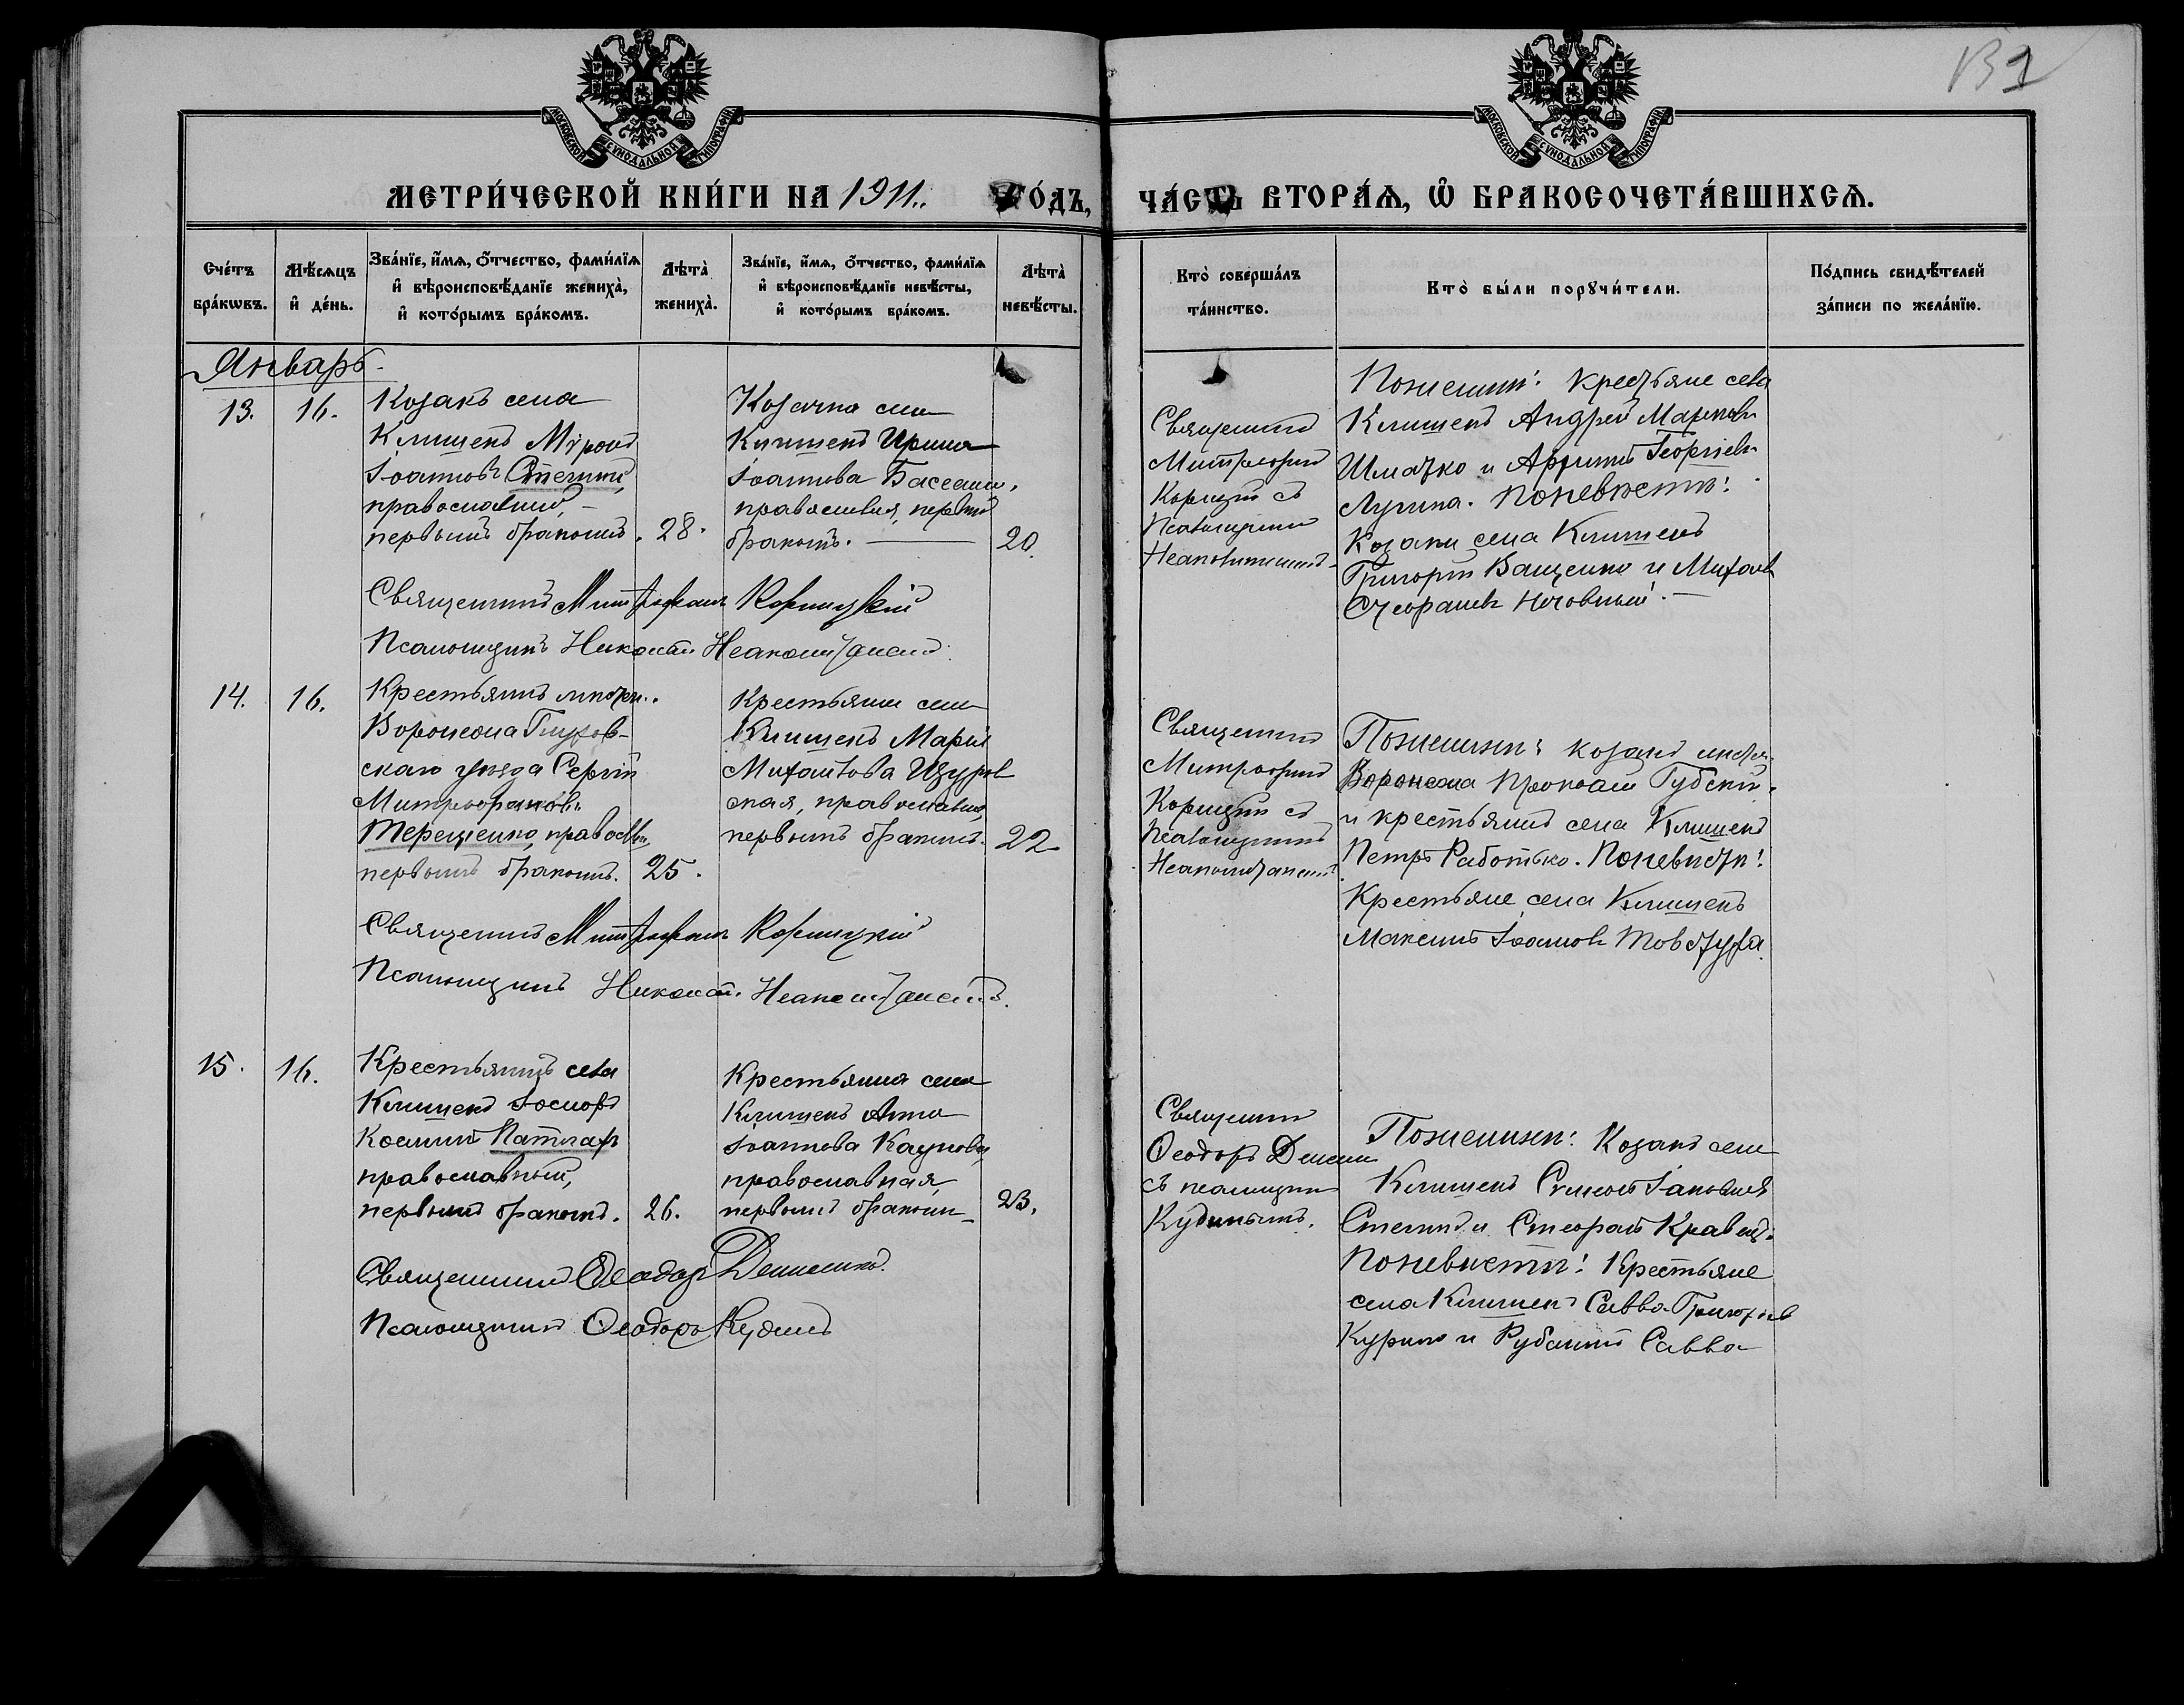 131
МОСКОВСКОЙ СѴНОДАЛЬНОЙ ТИПОГРАФІИ
МОСКОВСКОЙ СѴНОДАЛЬНОЙ ТИПОГРАФІИ
МЕТРИ́ЧЕСКОЙ КНИ́ГИ НА 1911. ГО́ДЪ,
ЧА́СТЬ ВТОРА́Ѧ, Ѽ БРАКОСОЧЕТА́ВШИХСѦ.
Сче́тъ бра́кѡвъ.
Мѣ́сѧцъ и҆ де́нь.
Зва́нїе, и҆́мѧ, ѻ҆́тчество, фами́лїѧ и҆ вѣроисповѣ́данїе жениха̀, и҆ кото́рымъ бра́комъ.
Лѣта̀ жениха̀.
Зва́нїе, и҆́мѧ, ѻ҆́тчество, фами́лїѧ и҆ вѣроисповѣ́данїе невѣ́сты, и҆ кото́рымъ бра́комъ.
Лѣта̀ невѣ́сты.
Кто̀ соверша́лъ та́инство.
Кто̀ бы́ли порꙋчи́тели.
По́дпись свидѣ́телей за́писи по жела́нїю.
Январь.
13.
16.
Козакъ села
Клишекъ Мѵронъ
Іоанновъ
православный,
первымъ бракомъ.
28.
Козачка села
Клишекъ Ирина
Іоаннова
православная, первымъ
бракомъ.
20.
Священникъ
Митрофанъ
Корицкій съ
Псаломщикомъ
Неаполитанскимъ
По женихѣ: крестьяне села
Клишекъ Андрей Марковъ
Шматко и Георгіевъ
По невѣстѣ:
Козаки села Клишекъ
Григорій Ващенко и Михаилъ
Священникъ Митрофанъ Корицкій
Псаломщикъ Николай Неаполитанскій
14.
16.
Крестьянинъ мѣстеч.
Воронежа Глухов-
скаго уѣзда Сергій
Митрофановъ
Терещенко, православный,
первымъ бракомъ.
25.
Крестьянка села
Клишекъ Марія
Михайлова
ская, православная,
первымъ бракомъ.
22
Священникъ
Митрофанъ
Корицкій съ
Псаломщикомъ
Неаполитанскимъ
По женихѣ: козакъ мѣстеч.
Воронежа Губскій
и крестьянинъ села Клишекъ
Петръ Работько. По невѣстѣ:
Крестьяне села Клишекъ
Максимъ Іоанновъ Товстуха.
Священникъ Митрофанъ Корицкій
Псаломщикъ Николай Неаполитанскій.
15.
16.
Крестьянинъ села
Клишекъ Іосифъ
Косминъ
православный,
первымъ бракомъ.
26.
Крестьянка села
Клишекъ Анна
Іоаннова
православная,
первымъ бракомъ
23.
Священникъ
Ѳеодоръ
съ псаломщик.
Кудинымъ.
По женихѣ: Козаки села
Клишекъ Симеонъ Іаковлевъ
и Стефанъ Кравецъ.
По невѣстѣ: Крестьяне
села Клишекъ Савва Григорьев
Курило и Савва
Священникъ Ѳеодоръ
Псаломщикъ Ѳеодоръ Кудинъ